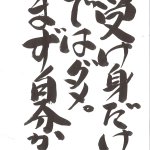 受け身だけ
ではダメ。
まず自分か